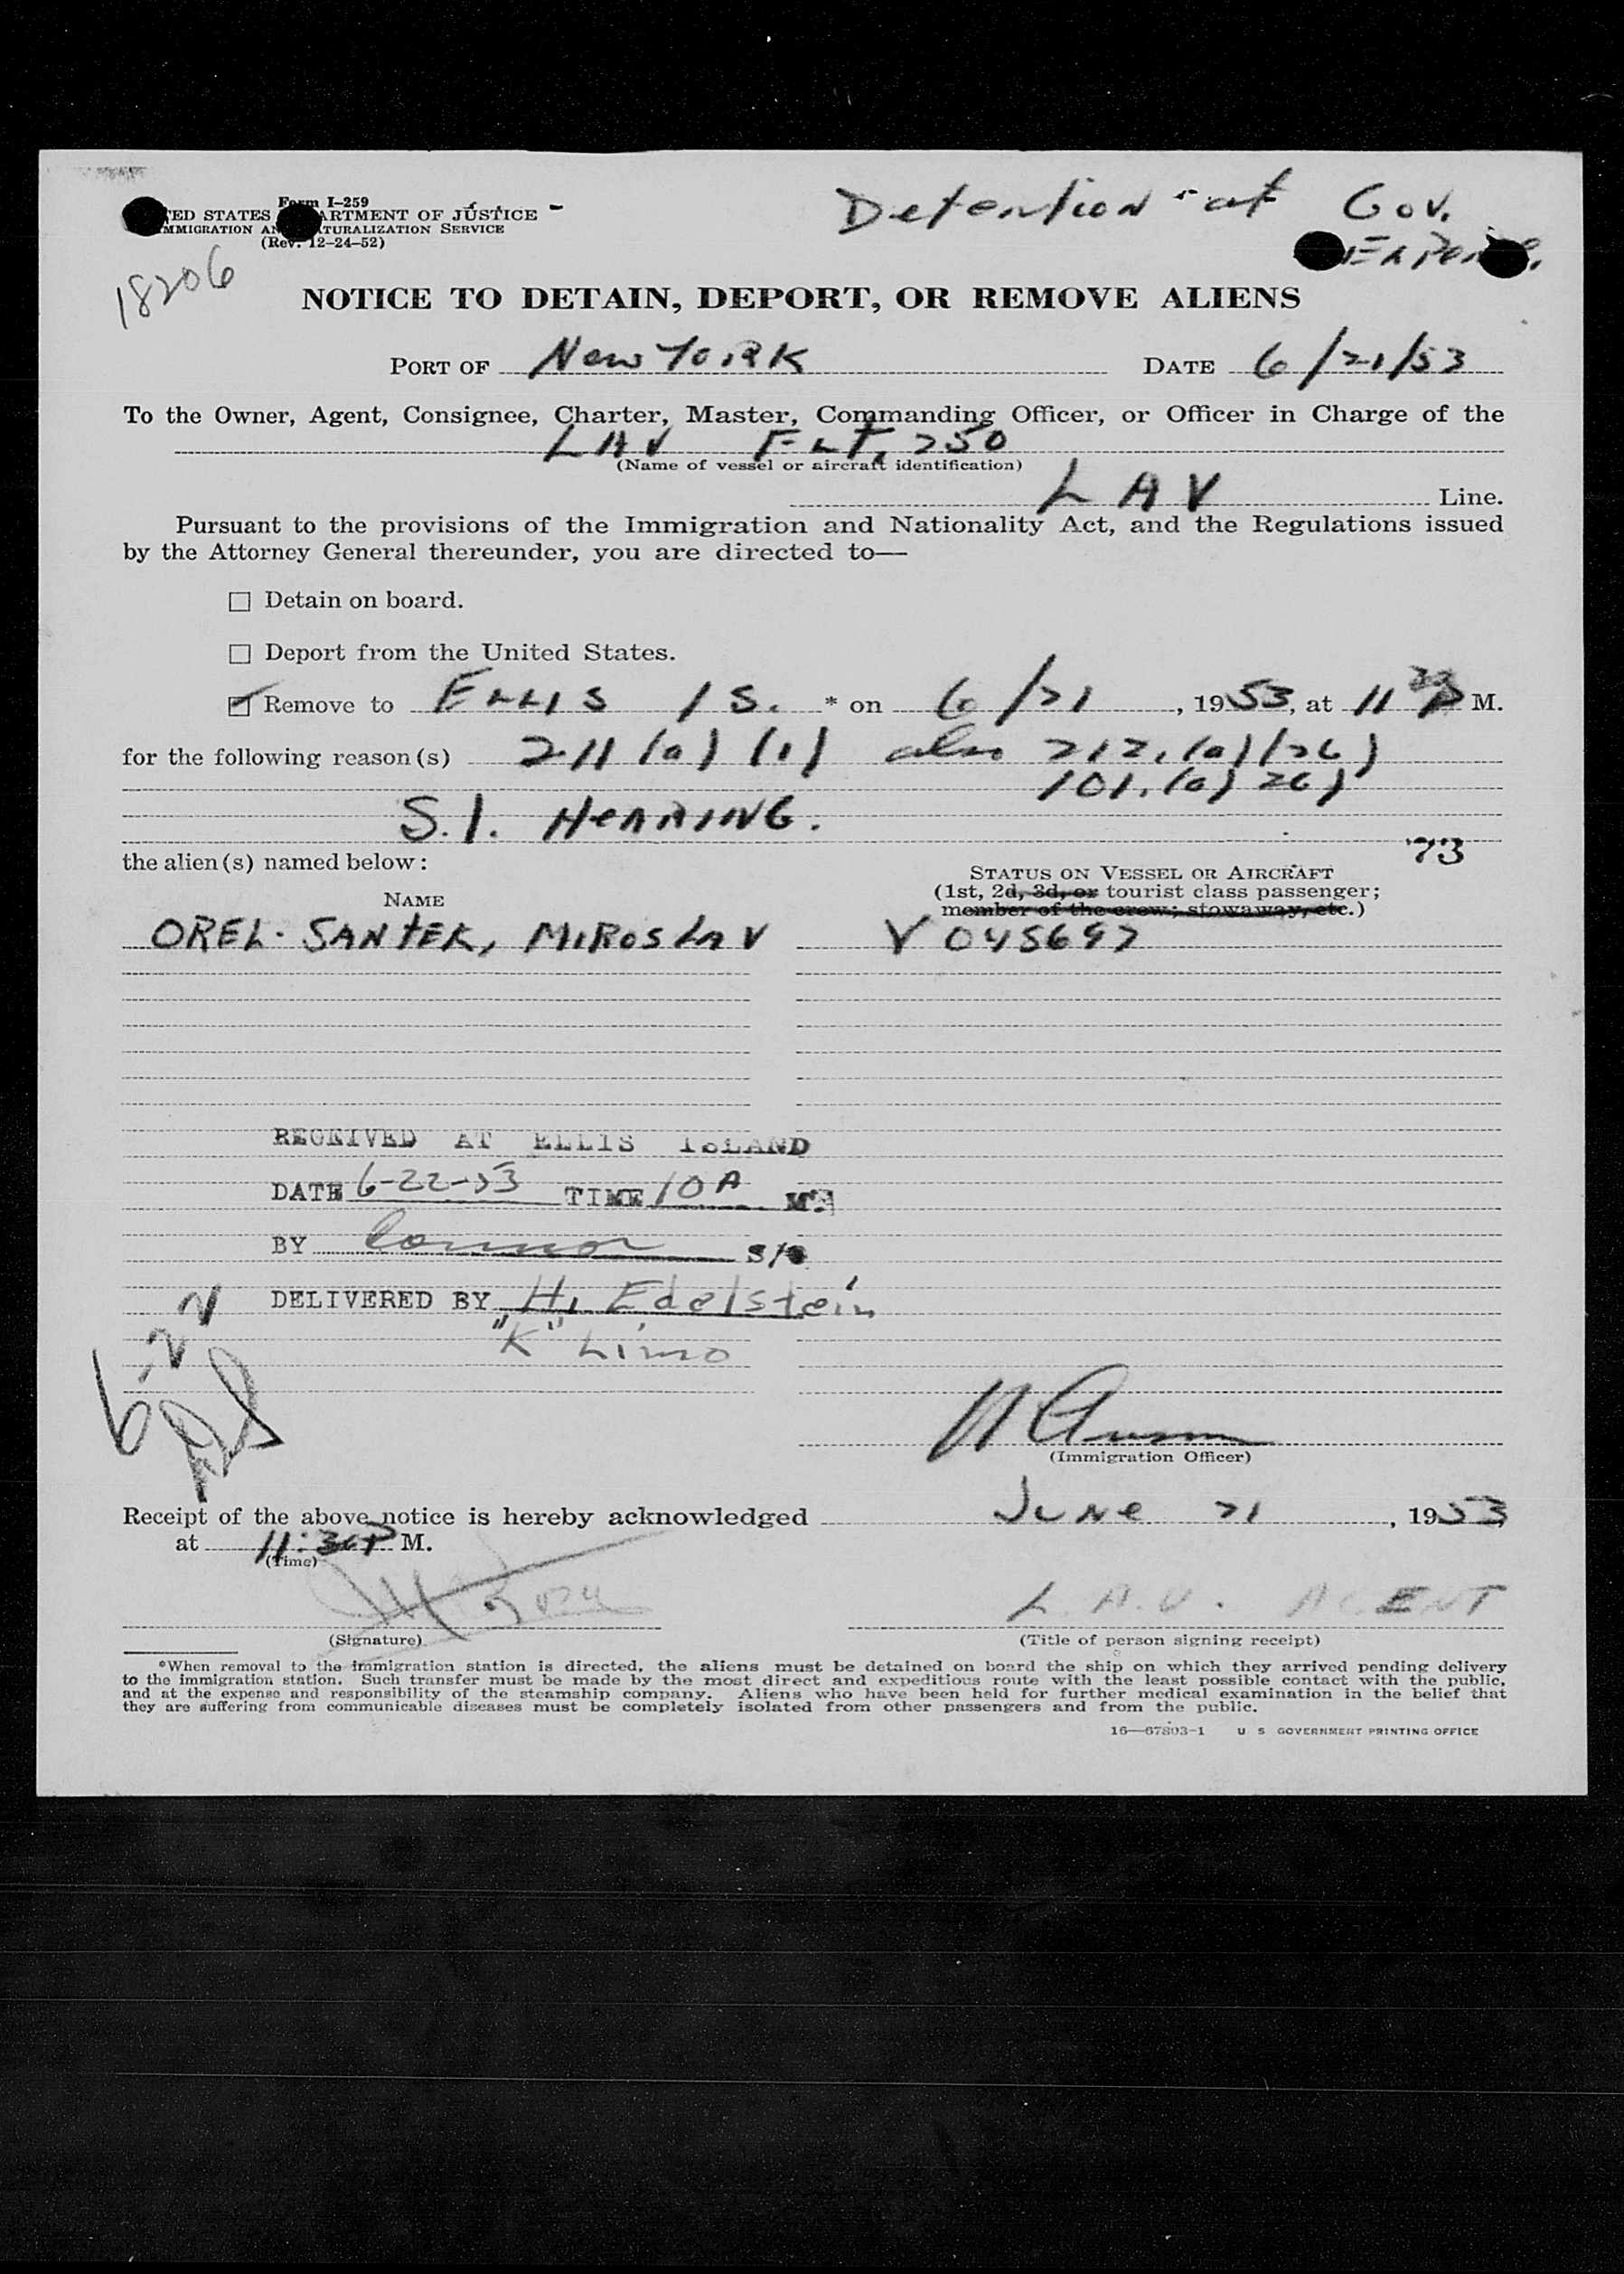 Form I-259
TED STATES ARTMENT OF JUSTICE
MMIGRATION AN TURALIZATION SERVICE
(Rev. 12-24-52)
Detention - at Gov.
18206
NOTICE TO DETAIN, DEPORT, OR REMOVE ALIENS
PORT OF New YORK DATE 6/21/53
To the Owner, Agent, Consignee, Charter, Master, Commanding Officer, or Officer in Charge of the
LAV FLT. 250
(Name of vessel or aircraft identification)
LAV Line.
Pursuant to the provisions of the Immigration and Nationality Act, and the Regulations issued
by the Attorney General thereunder, you are directed to—
Detain on board.
Deport from the United States.
Remove to ELLIS IS. * on 6/21, 1953, at 11 30 P M.
for the following reason(s) 211 (a) (1) also 212.(a)(26)
101.(a) 26)
S.I. HEARING.
'73
the alien(s) named below:
STATUS ON VESSEL OR AIRCRAFT
(1st, 2d, 3d, or tourist class passenger;
member of the crew; stowaway, etc.)
NAME
OREL-SANTEK, MIROSLAV V 045697
RECEIVED AT ELLIS ISLAND
DATE 6-22-53 TIME 10 A M.
BY Connor S/O
DELIVERED BY H. Edelstein
"K" Limo
6-22
(Immigration Officer)
Receipt of the above notice is hereby acknowledged June 21, 1953
at 11:30P M.
(Time)
L.A.V. AGENT
(Signature) (Title of person signing receipt)
*When removal to the immigration station is directed, the aliens must be detained on board the ship on which they arrived pending delivery
to the immigration station. Such transfer must be made by the most direct and expeditious route with the least possible contact with the public,
and at the expense and responsibility of the steamship company. Aliens who have been held for further medical examination in the belief that
they are suffering from communicable diseases must be completely isolated from other passengers and from the public.
16—67803-1 U S GOVERNMENT PRINTING OFFICE